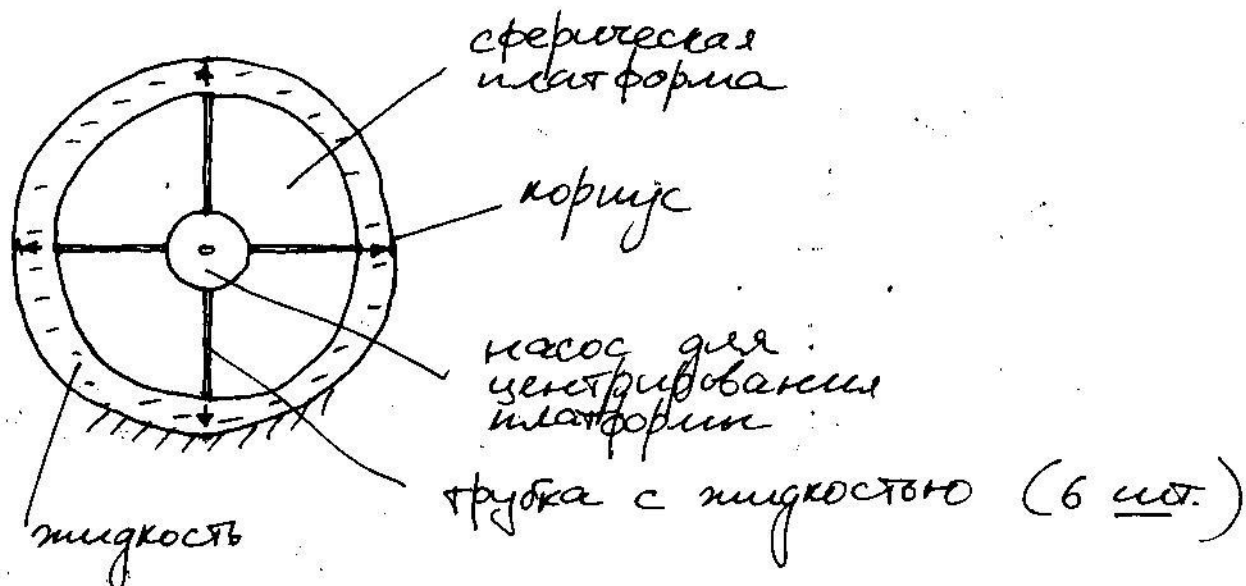 сферическая
платформа
корпус
насос для
центрирования
платформы
трубка с жидкостью (6 шт.)
жидкость